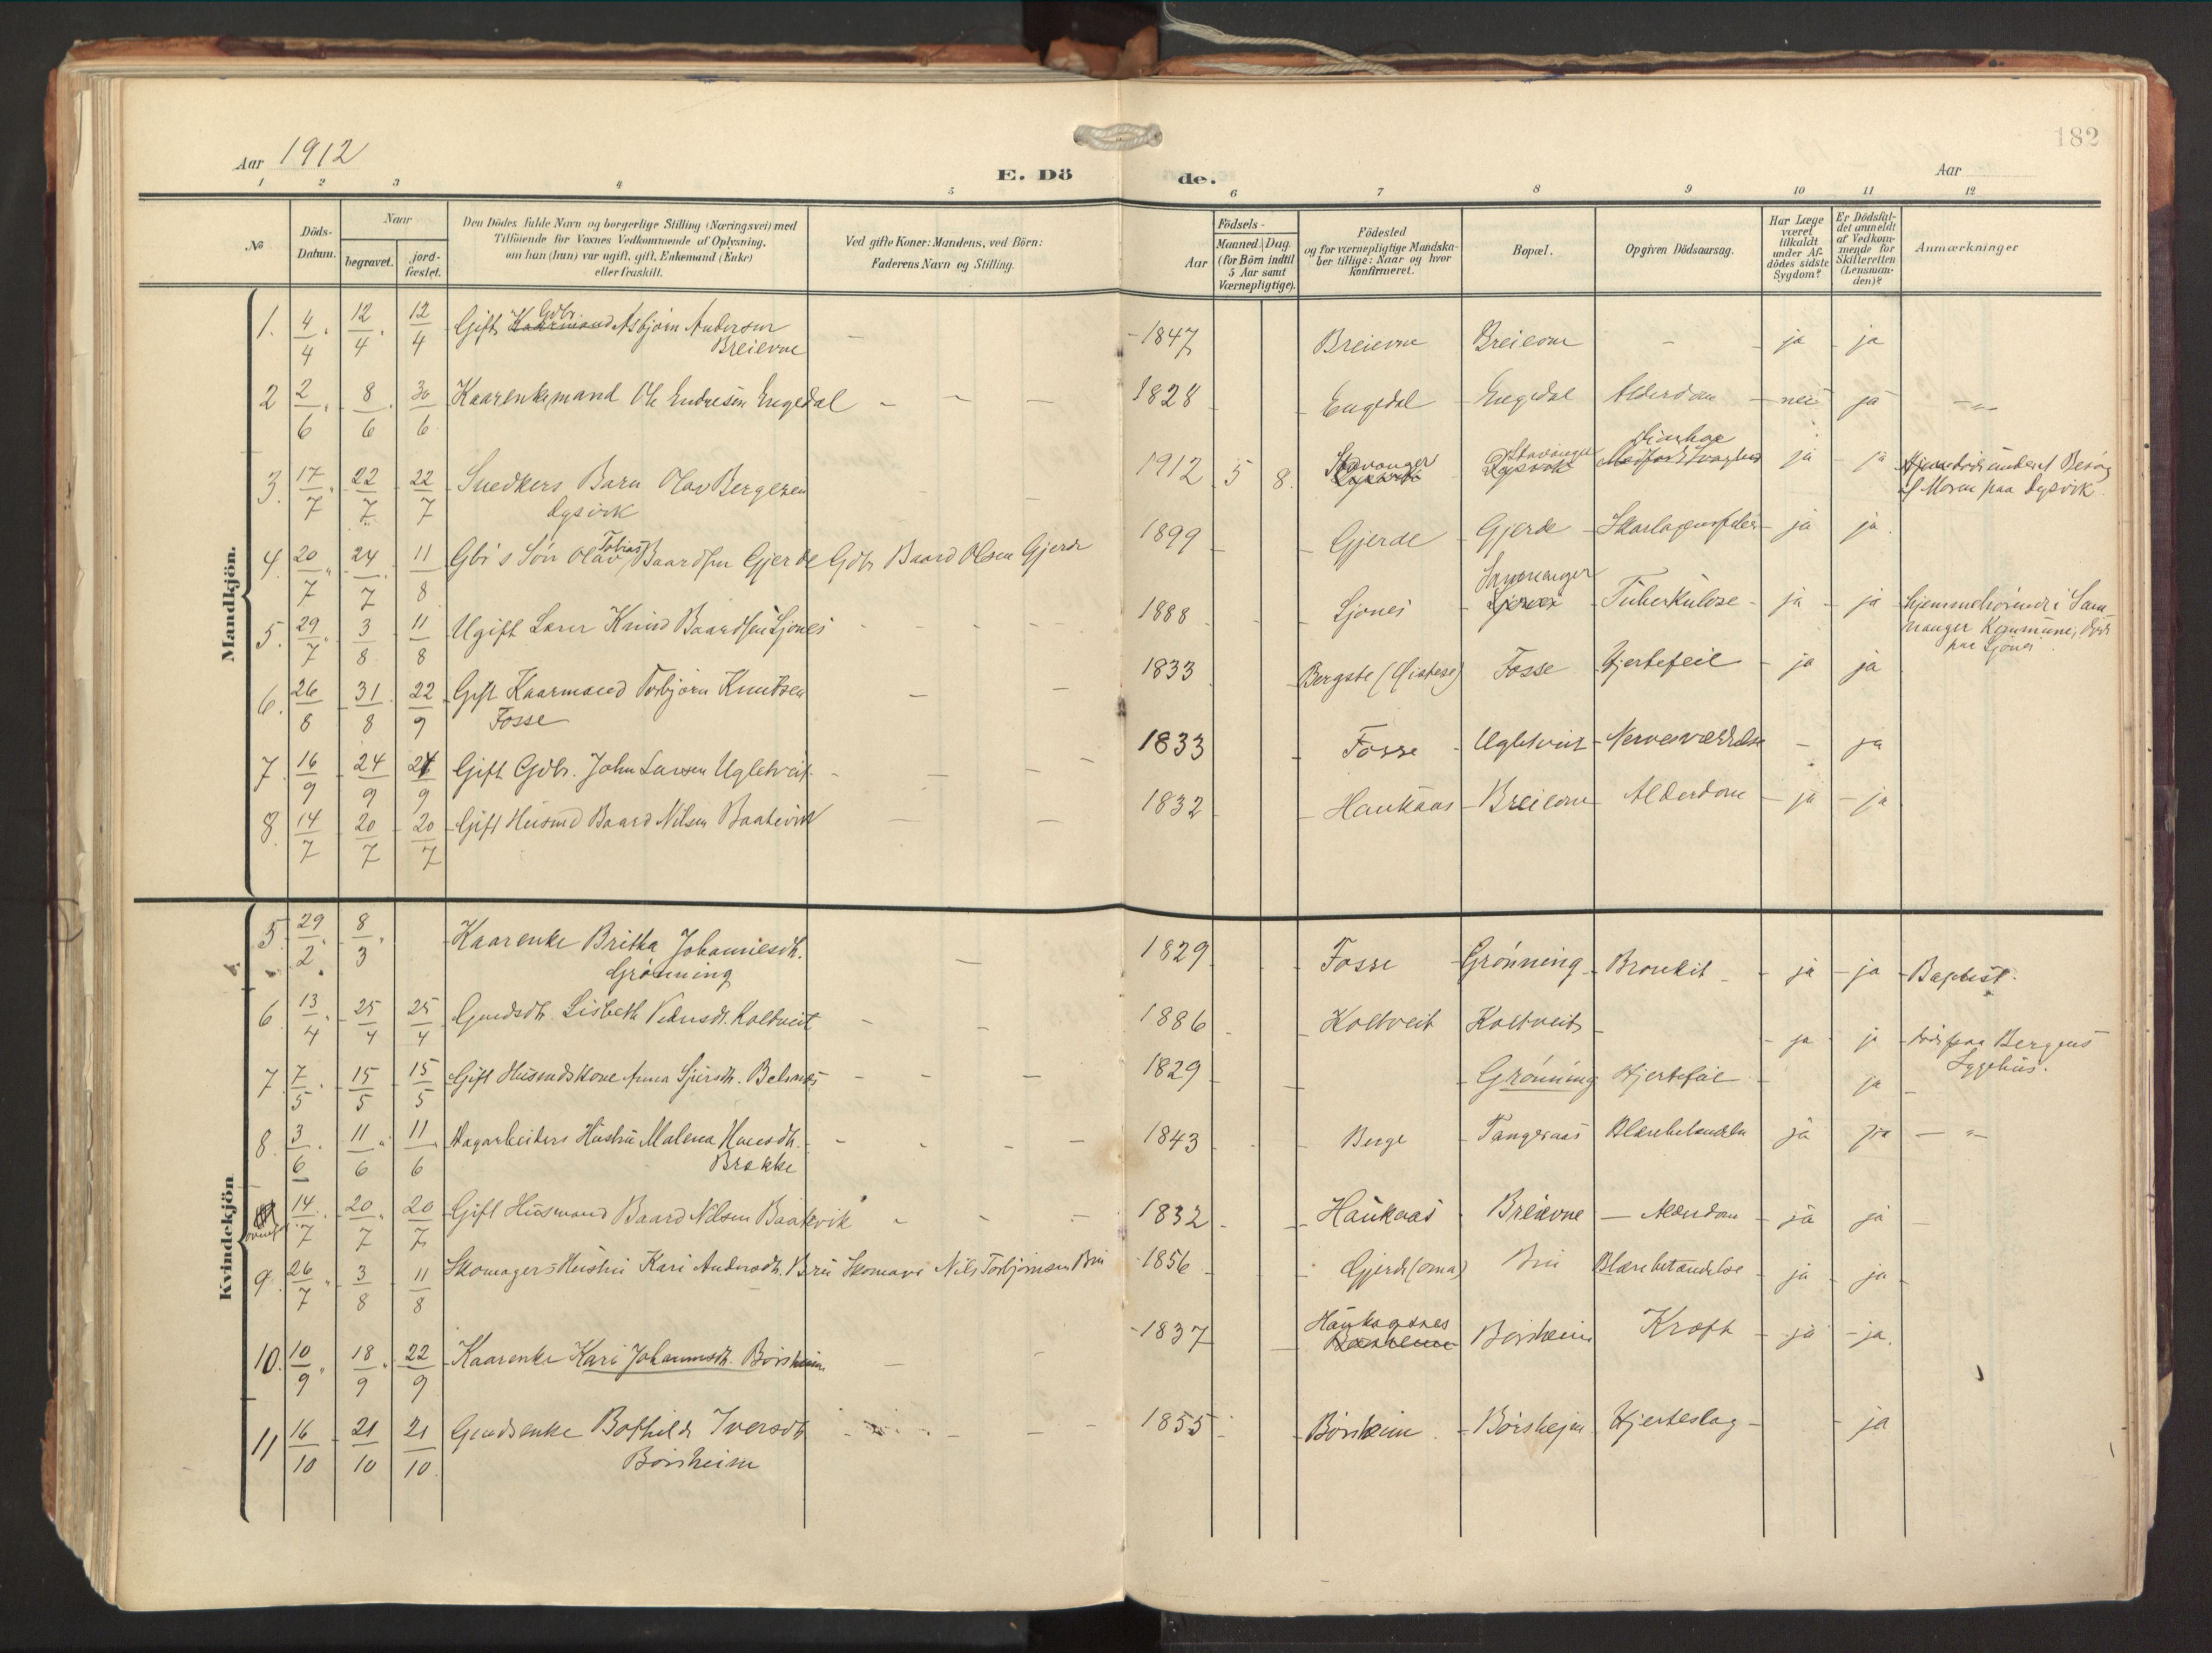 182
Aar 1912
E. Dö de.
Aar
1 2 3 4 5 6 7 8 9 10 11 12
No
Döds-Datum.
Naar
begravet.
jord-fæstet.
Den Dödes fulde Navn og borgerlige Stilling (Næringsvei) med
Tilföiende for Voxnes Vedkommende af Oplysning,
om han (hun) var ugift, gift, Enkemand (Enke)
eller fraskilt.
Ved gifte Koner: Mandens, ved Börn:
Faderens Navn og Stilling.
Födsels-
Aar
Maaned. Dag.
(for Börn indtil
5 Aar samt
Værnepligtige).
Födested
og for værnepligtige Mandska-
ber tillige: Naar og hvor
Konfirmeret.
Bopæl.
Opgiven Dödsaarsag.
Har Læge
været
tilkaldt
under Af-
dödes sidste
Sygdom?
Er Dödsfal-
det anmeldt
af Vedkom-
mende for
Skifteretten
(Lensman-
den)?
Anmærkninger
Mandkjön.
1. 4/4 12/4 12/4 Gift Kaarmand Gdbr. Asbjørn Andersen Breievne - -1847 Breievne Breievne - ja ja
2 2/6 8/6 30/6 Kaarenkemand Ole Endresen Engedal - - - 1828 Engedal Engedal Alderdom nei ja
3. 17/7 22/7 22/7 Snedkers Barn Olav Bergesen Dysvik 1912 5 8. Stavanger Stavanger Dysvik Diarhoe ja ja Besøg af Moren paa Dysvik
4. 20/7 24/7 11/8 Gbr's Søn Olav Tobias Baardsen Gjerde Gdbr Baard Olsen Gjerde 1899 Gjerde Gjerde Skarlagensfeber ja ja.
5. 29/7 3/8 11/8 Ugift Lærer Knud Baardsen Ljones 1888 Ljones Samnanger Ljones Tuberkulose ja ja hjemmehørende i Sam-
nanger Kommune, død
paa Ljones
6. 26/8 31/8 22/9 Gift Kaarmand Torbjørn Knudsen Fosse - - 1833 Bergste (Øistese) Fosse Hjertefeil ja ja
7. 16/9 24/9 24/9 Gift Gdbr. John Larsen Ugletveit - - 1833 Fosse Ugletveit Nervesvækkelse - ja
8. 14/7 20/7 20/7 Gift Husmd Baard Nilsen Baatevik - - 1832 Haukaas Breievne Alderdom ja ja
Kvindekjön
5. 29/2 8/3 Kaarenke Britha Johannesdt. Grønning - 1829 Fosse Grønning Bronkit ja ja Baptist.
6. 13/4 25/4 25/4 Gmdsdt. Lisbeth Koltveit - - 1886 Koltveit Koltveit ja ja død paa Bergens
Sygehus.
7. 7/5 15/5 15/5 Gift Husmdskone Anna Sjursdt. Belsnæs - - - 1829 Grønning Hjertefeil ja
8. 3/6 11/6 11/6 Dagarbeiders Hustru Malena Hansdt. Brekke 1843 Berge Tangeraas ja ja
14/7 20/7 20/7 Gift Husmand Baard Nilsen Baatevik 1832 Haukaas Breievne Alderdom ja ja
9. 26/7 3/8 11/8 Skomagers Hustru Kari Andersdt. Bru Skomager Nils Torbjørnsen Bru 1856 Gjerde (Oma) Bru Blærebetændelse ja ja
10. 10/9 18/9 22/9 Kaarenke Kari Johannesdt. Børsheim - - 1837 Haukagsnes Børsheim Kræft ja ja.
11 16/10 21/10 21/10 Gmdsenke Bothilde Iversdt. Børsheim 1855 Børsheim Børsheim Hjerteslag ja